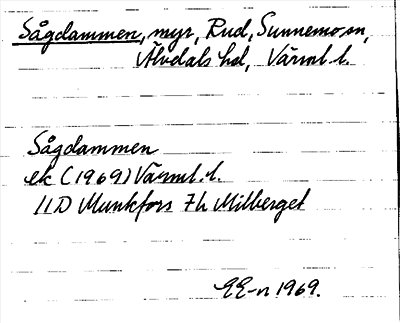 Sågdammen, myr, Rud, Sunnemo sn,
Älvdals hd, Värml. l.
Sågdammen
ek (1969) Värml. l.
11D Munkfors 7h Milberget
EE-n 1969.